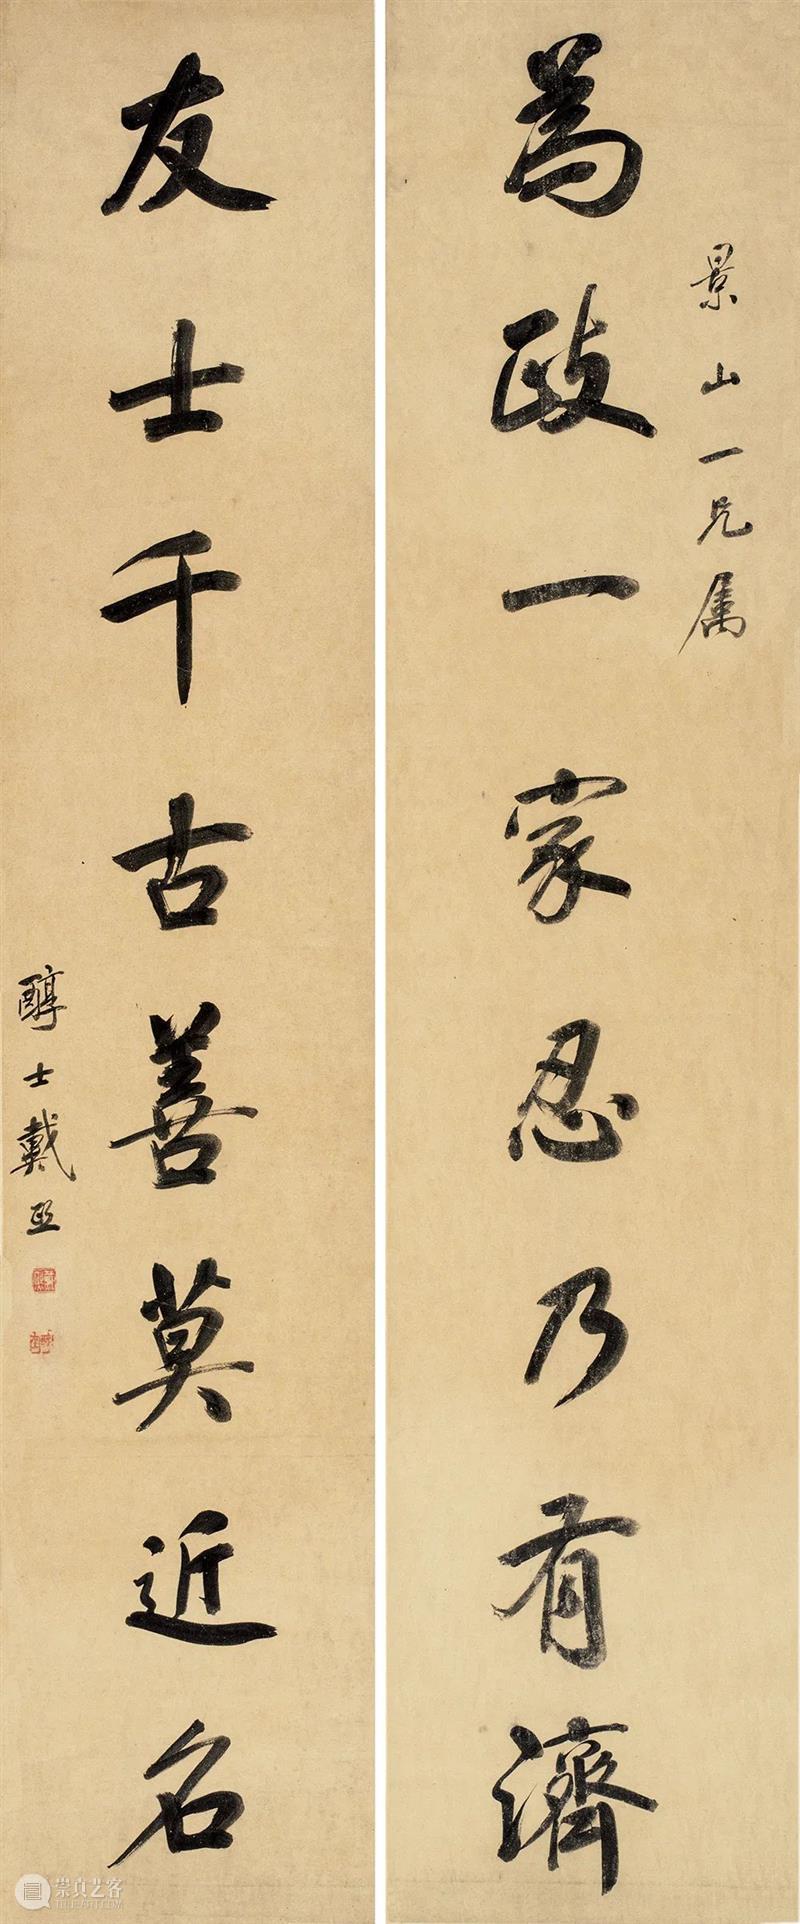 景山一兄属
為政一家忍乃有濟
友士千古善莫近名
醇士戴熙
崇真艺客